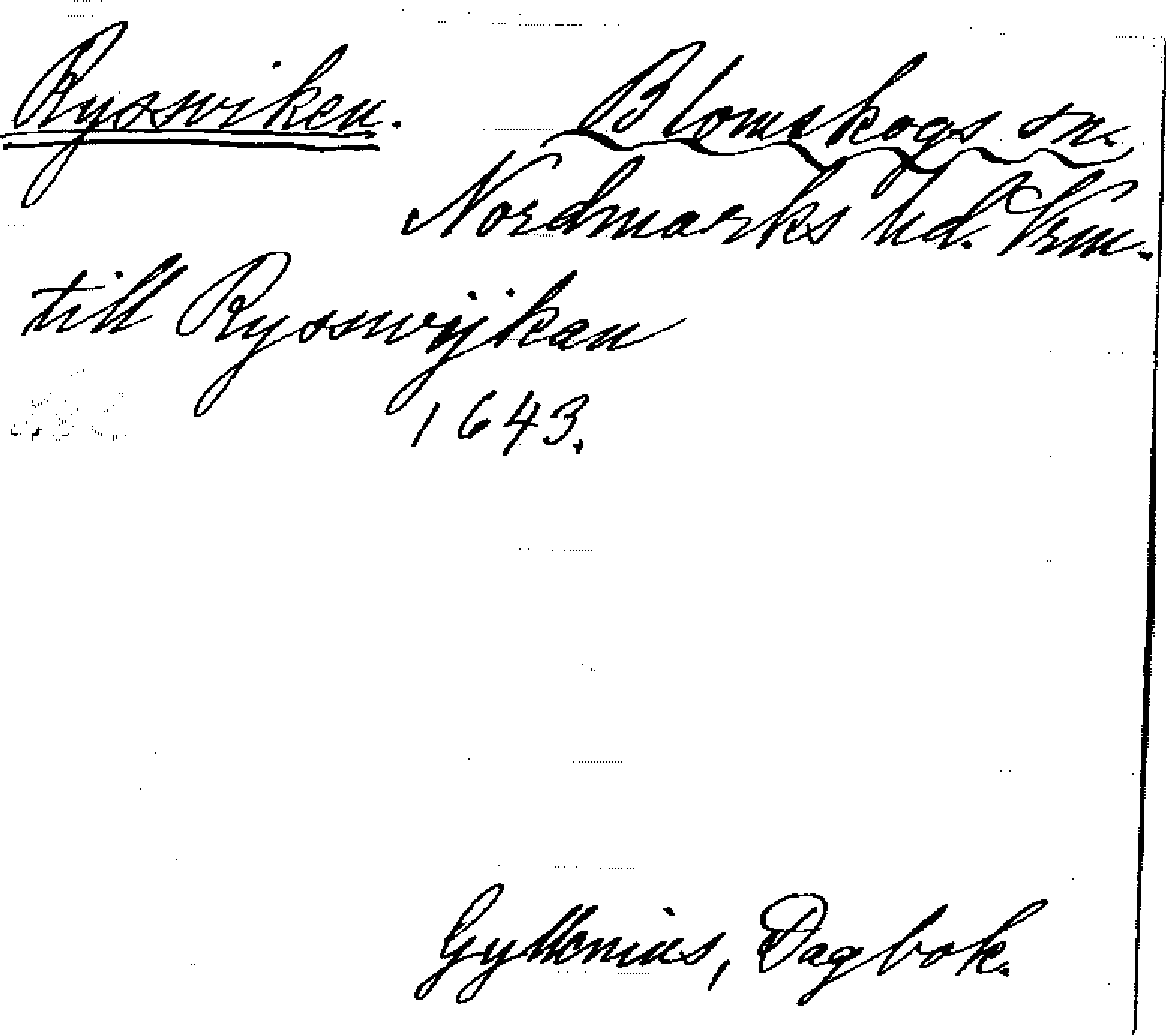 Rysswiken. Blomskogs sn.
Nordmarks hd. Vrm.
till Rysswijkan
1643.
Gyllenius, Dagbok.